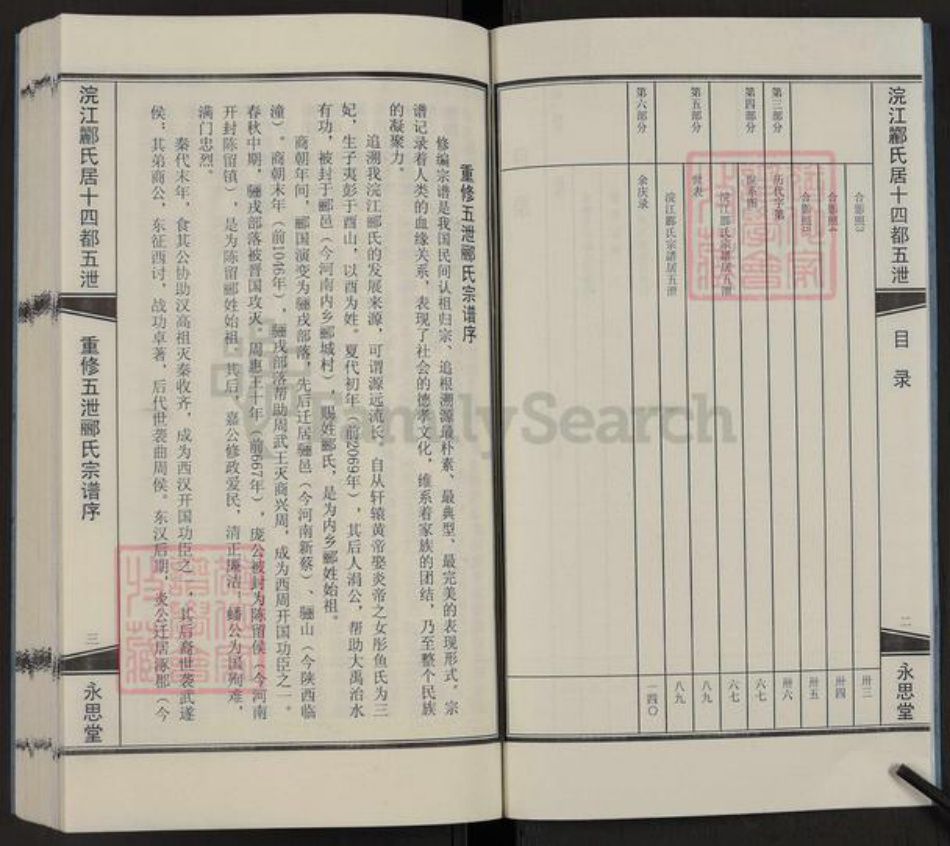 浣江酈氏居十四都五泄
目录
二
永思堂
合影照3 卅三
合影照4 卅四
合影照5 卅五
第三部分 历代字第 卅六
第四部分 世系图 六七
浣江酈氏宗谱居五泄 六七
第五部分 世表 八九
浣江酈氏宗谱居五泄 八九
第六部分 余庆录 一四〇
重修五泄郦氏宗谱序
修编宗谱是我国民间认祖归宗、追根溯源最朴素、最典型、最完美的表现形式。宗
谱记录着人类的血缘关系，表现了社会的德孝文化，维系着家族的团结，乃至整个民族
的凝聚力。
追溯我浣江郦氏的发展来源，可谓源远流长。自从轩辕黄帝娶炎帝之女彤鱼氏为三
妃，生子夷彭于酉山，以酉为姓。夏代初年（前2069年），其后人涓公，帮助大禹治水
有功，被封于郦邑（今河南内乡郦城村），赐姓郦氏，是为内乡郦姓始祖。
商朝年间，郦国演变为骊戎部落，先后迁居骊邑（今河南新蔡）、骊山（今陕西临
潼）。商朝末年（前1046年），骊戎部落帮助周武王灭商兴周，成为西周开国功臣之一。
春秋中期，骊戎部落被晋国攻灭。周惠王十年（前667年），庞公被封为陈留侯（今河南
开封陈留镇），是为陈留郦姓始祖。其后，嘉公修政爱民，清正廉洁；蟠公为国殉难，
满门忠烈。
秦代末年，食其公协助汉高祖灭秦收齐，成为西汉开国功臣之一，其后裔世袭武遂
侯；其弟商公，东征西讨，战功卓著，后代世袭曲周侯。东汉后期，炎公迁居涿郡（今
浣江酈氏居十四都五泄
重修五泄郦氏宗谱序
三
永思堂
FamilySearch